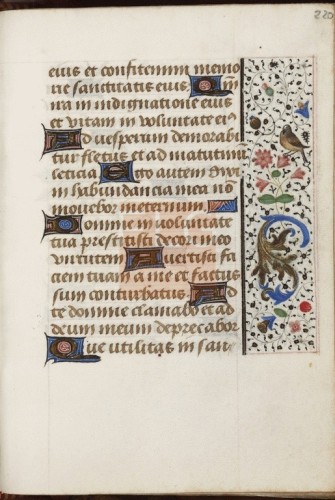 220
eius et confitemini memo
rie sanctitatis eius Qm̄
ira in indignatione eius
et vitam in voluntate eiꝰ
Ad vesperum demorabi
tur fletus et ad matutinū
leticia Ego autem dixi
in habundancia mea nō
movebor ineternum
Domine in voluntate
tua prestitisti decori meo
virtutem Avertisti fa
ciem tuam a me et factus
sum conturbatus Ad
te domine clamabo et ad
deum meum deprecabor
Que utilitas in san